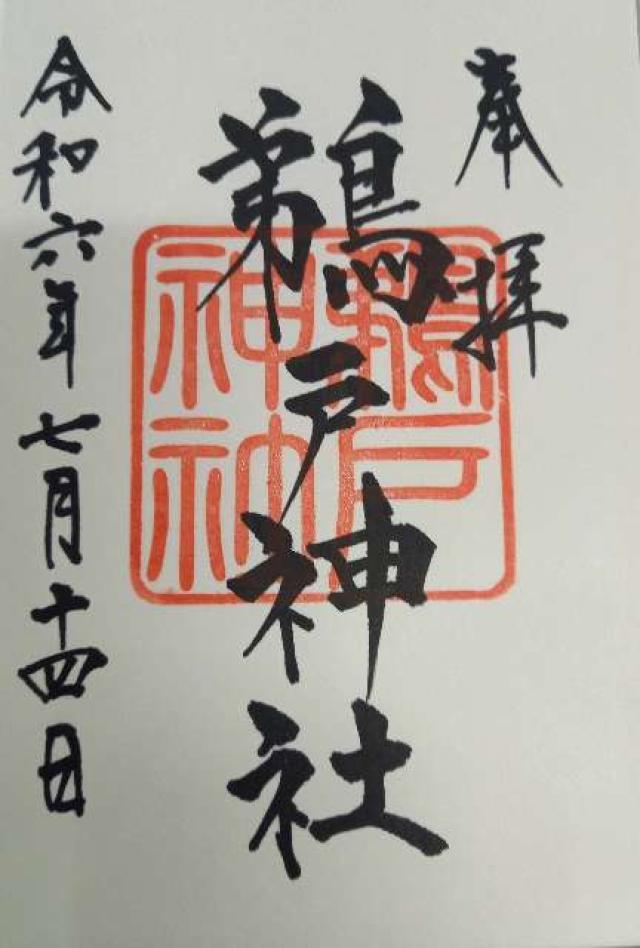 奉拝
鵜戸神社
鵜戸
神社
令和六年七月十四日